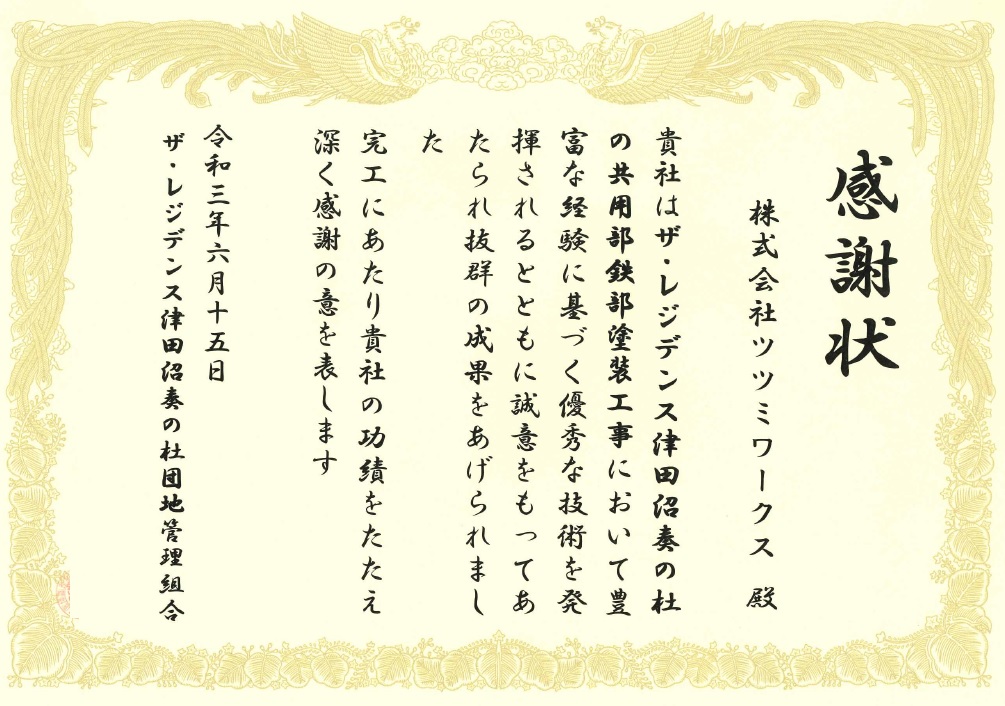 感謝状
株式会社ツツミワークス 殿
貴社はザ・レジデンス津田沼奏の杜
の共用部鉄部塗装工事において豊
富な経験に基づく優秀な技術を発
揮されるとともに誠意をもってあ
たられ抜群の成果をあげられまし
た
完工にあたり貴社の功績をたたえ
深く感謝の意を表します
令和三年六月十五日
ザ・レジデンス津田沼奏の杜団地管理組合